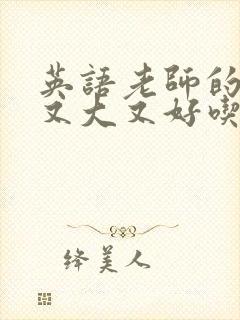 英語老師的
又大又好喫
绛美人